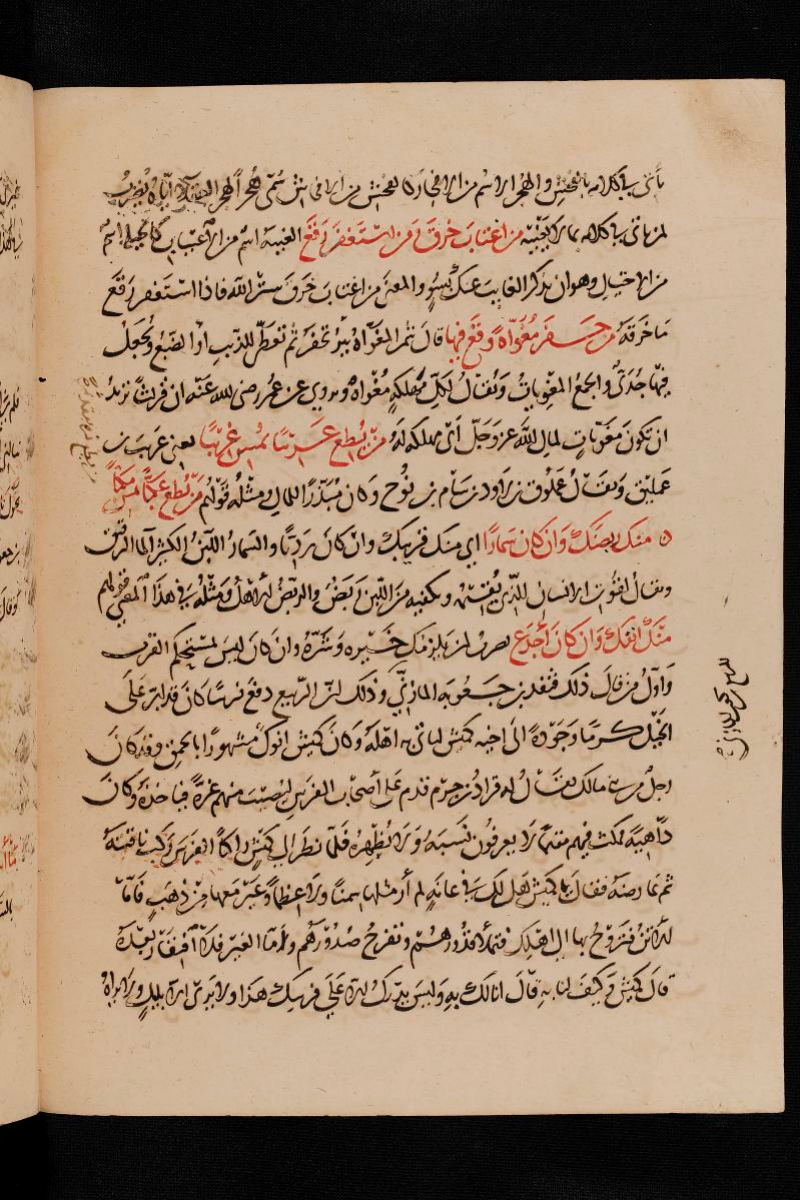 يأتي في كلامه بالفحش والهجر اسم من الاهجار كالفحش من الافحاش سمي هجرا لهجر العقلاء اياه يضرب
لمن يأتي في كلامه بما لا يعنيه من اغتاب خرق ومن استغفر رقع الغيبة اسم من الاغتياب كالحيلة اسم
من الاحتيال وهو ان يذكر الغايب عنك بسوء والمعنى من اغتاب خرق ستر الله فاذا استغفر رقع
ما خرقه من حفر مغواة وقع فيها قال شمر المغواة بئر تحفر ثم تغطى للذئب او الضبع ويجعل
فيها جدي والجمع المغويات ويقال لكل مهلكة مغواة وروي عن عمر رضى الله عنه ان قريشا تريد
ان تكون مغويات لمال الله عز وجل اى مهلكة له من يطع عريبا يمس غريبا يعنى عريب بن
عمليق ويقال عملوق بن لاود بن سام بن نوح وكان مبذرا للمال ومثله قولهم من يطع عكبا يمس منكبا
منك ربضك وان كان سمارا اي منك قريبك وان كان رديا والسمار اللبن الكثير الماء الرقيق
ويقال لقوت الانسان الذي يقيمه ويكفيه من اللبن ربض والربض الاهل ومثله في هذا المعنى قولهم
منك انفك وان كان اجدع يضرب لمن يلزمك خيره وشره وان كان ليس بمستحكم القرب
واول من قال ذلك قنفذ بن جعونة المازني وذلك ان الربيع دفع فرسا كان قد ابر على
الخيل كرما وجودة الى اخيه كميش لياتي به اهله وكان كميش انوك مشهورا بالحمق وقد كان
رجل من بني مالك يقال له قراد بن جرم قدم على اصحاب الفرس ليصيب منهم غرة فياخذه وكان
داهية فمكث فيهم مقيما لا يعرفون نسبه ولا يظهره فلما نظر الى كميش راكبا الفرس ركب ناقته
ثم عارضه فقال يا كميش هل لك في عانة لم ار مثلها سمنا ولا عظما وعير معها من ذهب فاما
الاتن فتروح بها الى اهلك فتملأ قدورهم وتفرح صدورهم واما العير فلا افتقار بعده
قال كميش وكيف لنا به قال انا لك به وليس يدرك الا على فرسك هذا ولا يرى الا بليل ولا يراه